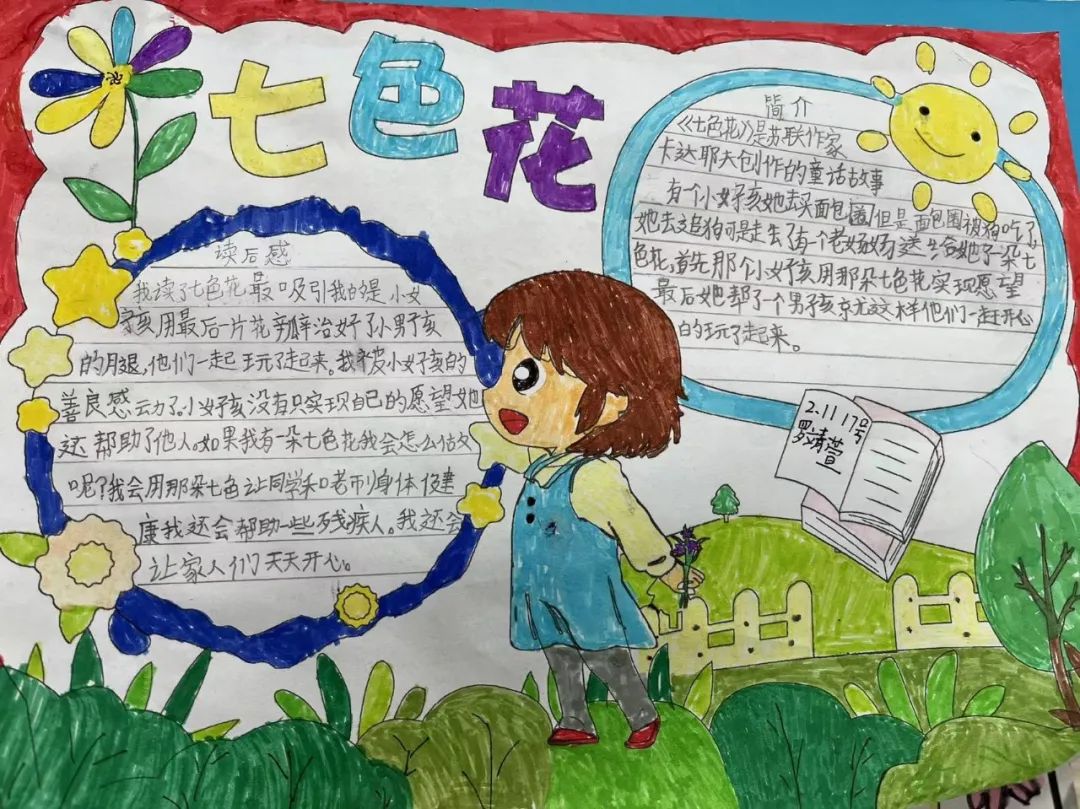 七色花
简介
《七色花》是苏联作家
卡达耶夫创作的童话故事
有个小女孩她去买面包圈但是面包圈被狗吃了
她去追狗可是走丢了有个老奶奶送给她了一朵七
色花，首先那个小女孩用那朵七色花实现愿望
最后她帮了一个男孩就这样他们一起开心
的玩了起来。
2.11 17号
罗婧萱
读后感
我读了七色花最吸引我的是小女
孩用最后一片花瓣治好了小男孩
的腿，他们一起玩了起来。我被小女孩的
善良感动了。小女孩没有只实现自己的愿望她
还帮助了他人。如果我有一朵七色花我会怎么做
呢？我会用那朵七色让同学和老师身体健
康我还会帮助一些残疾人。我还会
让家人们天天开心。